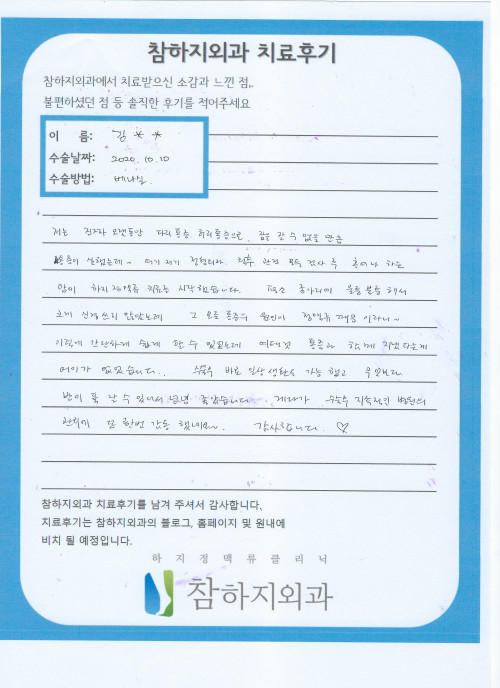 참하지외과 치료후기
참하지외과에서 치료받으신 소감과 느낀 점,
불편하셨던 점 등 솔직한 후기를 적어주세요
이 름: 김 * *
수술날짜: 2020.10.10
수술방법: 베나실
저는 진짜 오랫동안 다리통증 허리통증으로 잠을 잘 수 없을 만큼
통증이 심했는데~ 여기 저기 척추 관절 모두 검사 후 혹여나 하는
맘에 하지정맥류 치료를 시작했습니다. 평소 종아리에 울퉁불퉁 해서
크게 신경쓰지 않았는데 그 모든 통증의 원인이 정맥류 때문 이라니~
이렇게 간단하게 쉽게 할 수 있었는데 여태껏 통증과 함께 지냈다는게
어이가 없었습니다. 수술후 바로 일상생활도 가능했고 무엇보다
잠이 푹 잘 수 있어서 정말 좋았습니다. 게다가 수술후 지속적인 병원의
관리에 또 한번 감동 했네요~ 감사합니다. ♡
참하지외과 치료후기를 남겨 주셔서 감사합니다,
치료후기는 참하지외과의 블로그, 홈페이지 및 원내에
비치 될 예정입니다.
하지정맥류클리닉
참하지외과